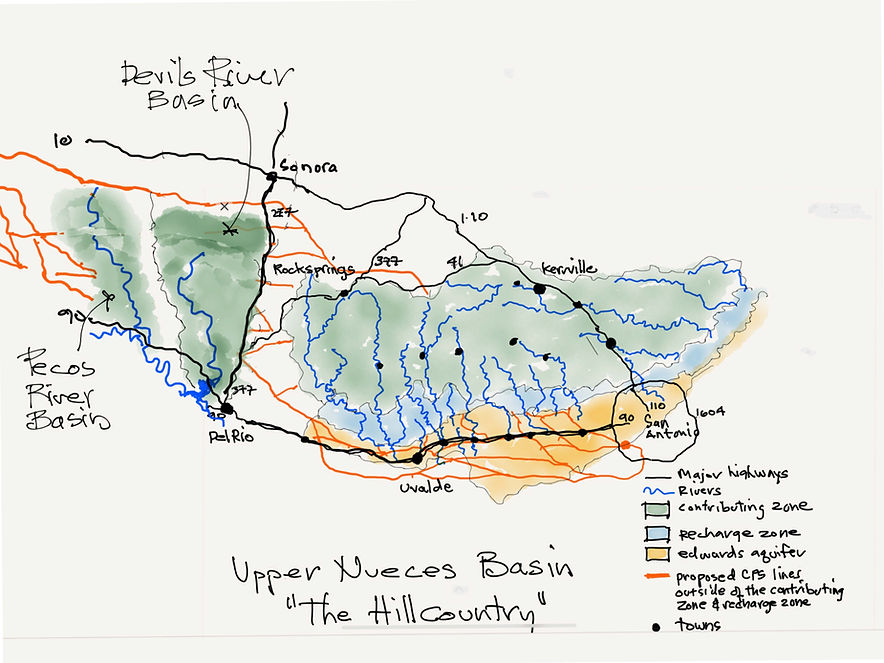 Devils River
Basin
10
Sonora
277
I-10
Rocksprings
377
41
Kerrville
90
Pecos
River
Basin
377
90
Del Rio
Uvalde
90
I10
San
Antonio
1604
Major highways
Rivers
contributing zone
recharge zone
edwards aquifer
proposed CPS lines
outside of the contributing
zone & recharge zone
towns
Upper Nueces Basin
"The Hill Country"